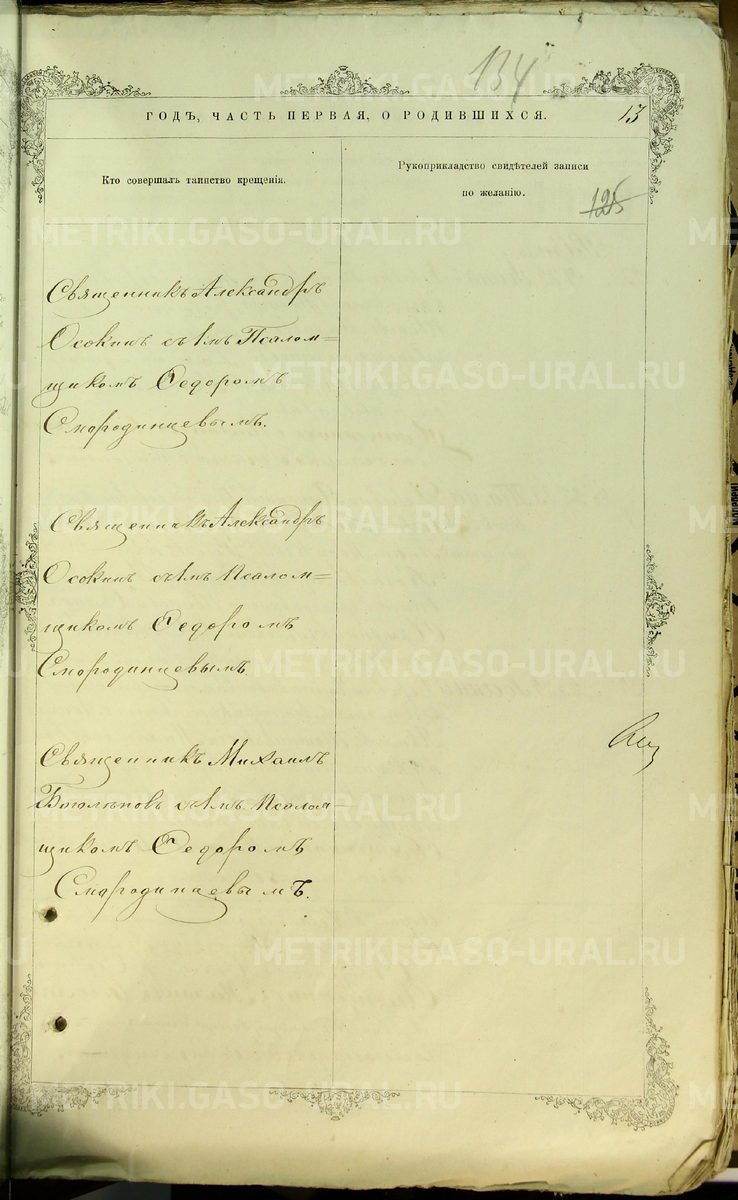 134
ГОДЪ, ЧАСТЬ ПЕРВАЯ, О РОДИВШИХСЯ.
13
Кто совершалъ таинство крещенія.
Рукоприкладство свидѣтелей записи
по желанію.
125
Священникъ Александръ
Осокинъ съ 1мъ Псалом=
щикомъ Ѳедоромъ
Смородинцевымъ.
Священникъ Александръ
Осокинъ съ 1мъ Псалом=
щикомъ Ѳедоромъ
Смородинцевымъ.
Священникъ Михаилъ
Боголѣповъ съ 1мъ Псалом-
щикомъ Ѳедоромъ
Смородинцевымъ.
METRIKI.GASO-URAL.RU